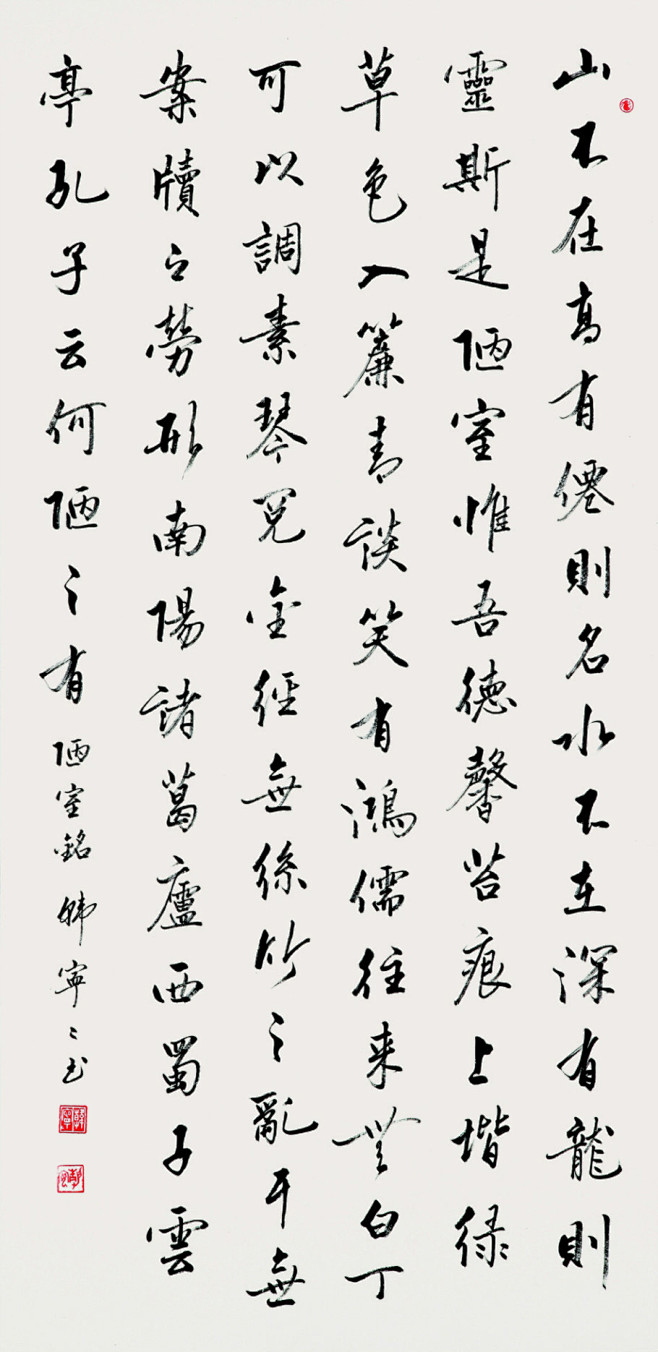 山不在高有僊則名水不在深有龍則
靈斯是陋室惟吾德馨苔痕上堦緑
草色入簾青談笑有鴻儒往來無白丁
可以調素琴閲金經無絲竹之亂耳無
案牘之勞形南陽諸葛廬西蜀子雲
亭孔子云何陋之有
陋室銘 韩寧〻书